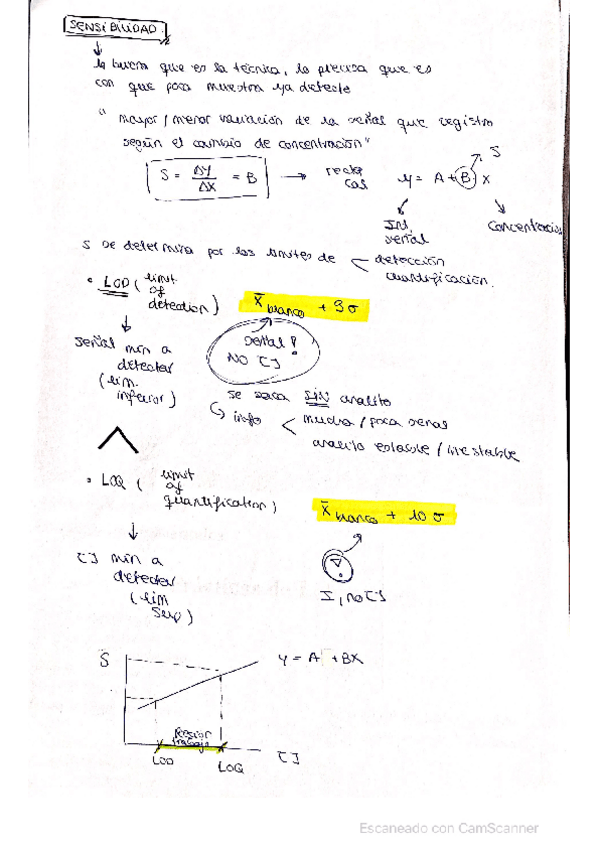 SENSIBILIDAD
lo buena que es la técnica, lo precisa que es
con que poca muestra ya detecte
"mayor/menor variación de la señal que registro
según el cambio de concentración"
S = Δy/Δx = B → recta cal y = A + B x
S
Int. señal
Concentración
S se determina por los límites de detección
cuantificación.
• LOD (limit of detection)
x̄ blanco + 3σ
señal min a detectar (lim. inferior)
señal! NO [ ]
se saca SIN analito
info mucha/poca señal
analito estable/inestable
• LOQ (limit of quantification)
x̄ blanco + 10σ
[ ] min a detectar (lim sup)
I, no [ ]
S
y = A + BX
trabajo
LOD
LOQ
[ ]
Escaneado con CamScanner